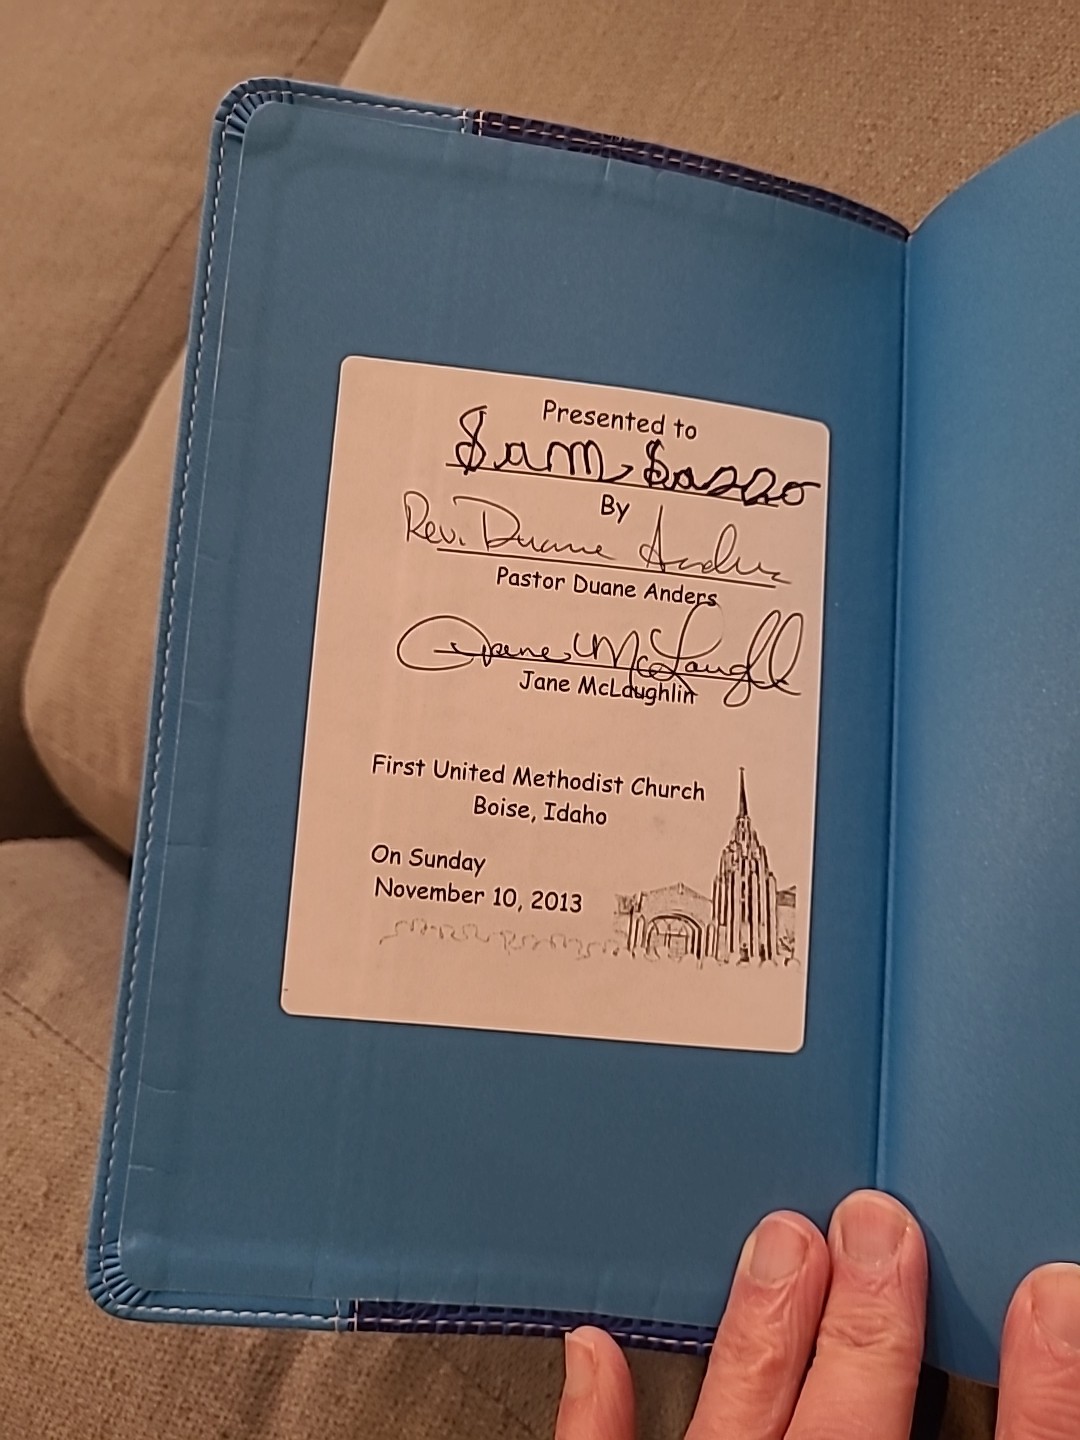 Presented to
Sam Sasso
By
Rev. Duane Anders
Pastor Duane Anders
Jane McLaughlin
Jane McLaughlin
First United Methodist Church
Boise, Idaho
On Sunday
November 10, 2013